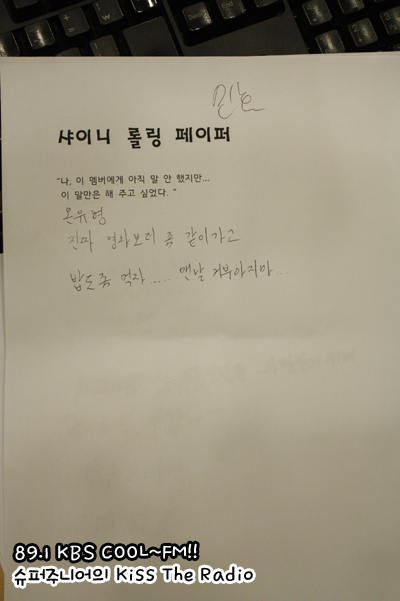 민호
샤이니 롤링 페이퍼
"나, 이 멤버에게 아직 말 안 했지만...
이 말만은 해 주고 싶었다. "
온유형
진짜 영화보러 좀 같이가고
밥도좀 먹자..... 맨날 거부하지마...
89.1 KBS COOL~FM!!
슈퍼주니어의 Kiss The Radio